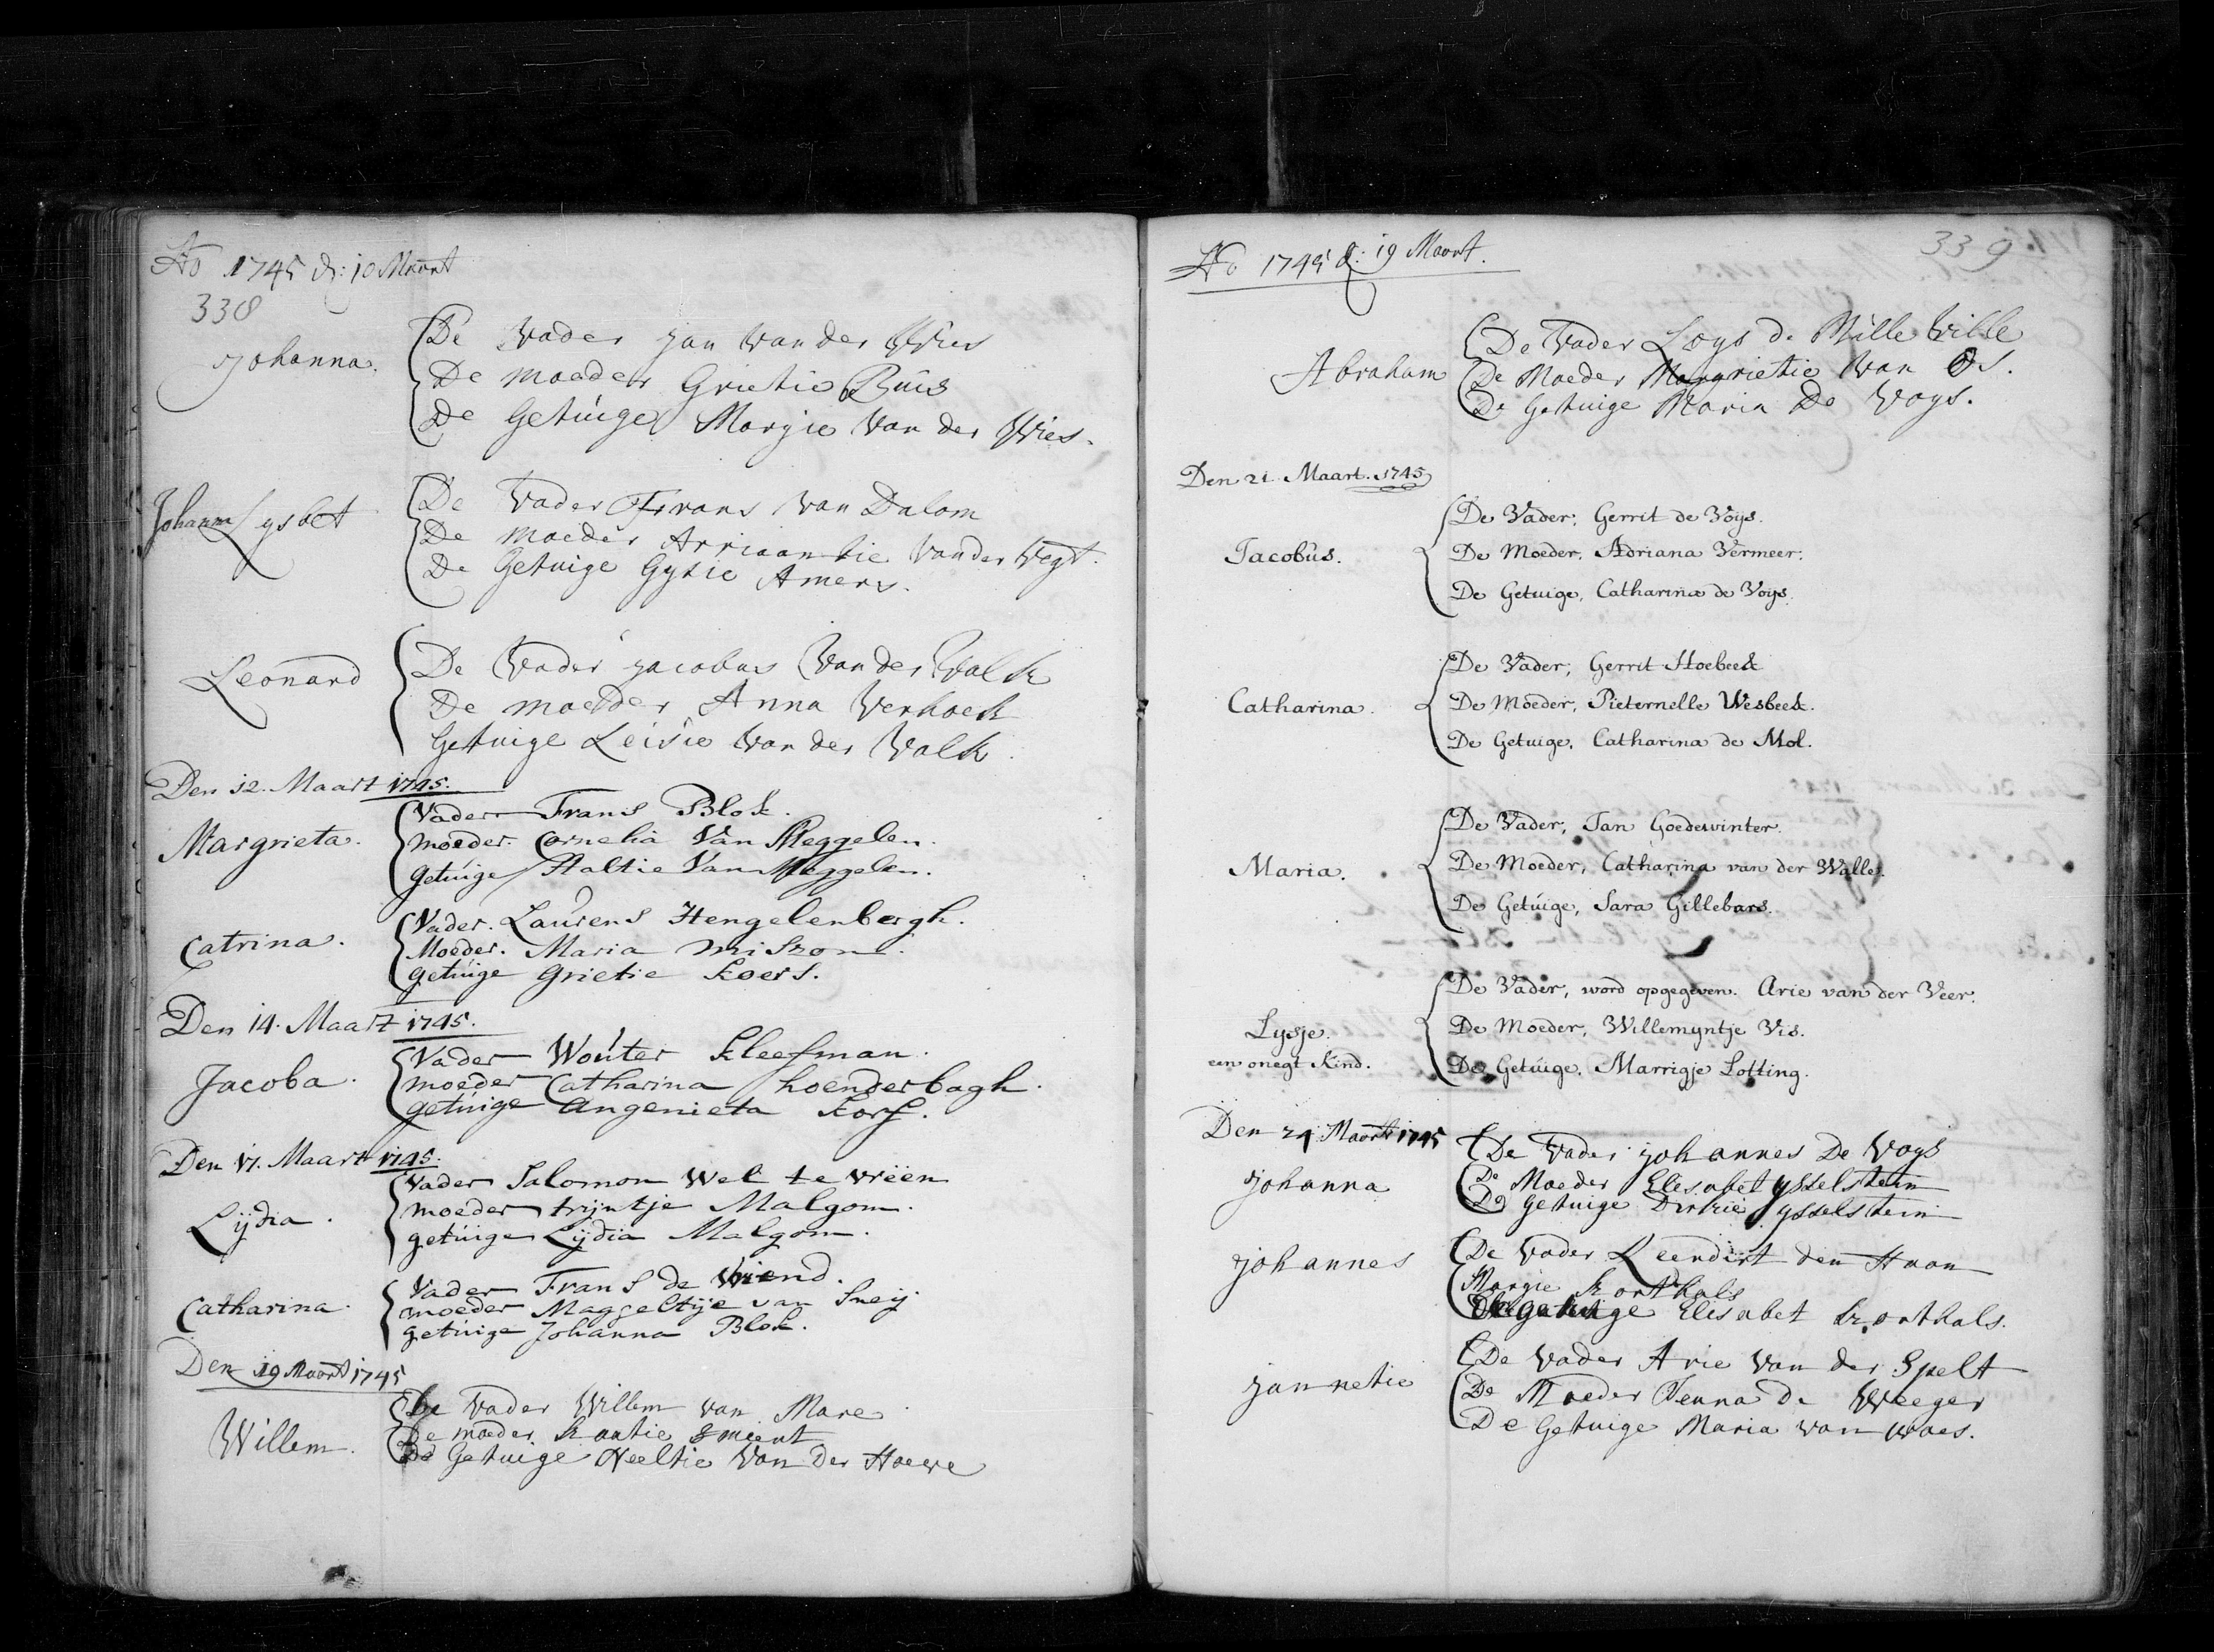 Ao 1745 d: 10 Maart
338
Johanna.
De Vader Jan van der Wies
De moeder Grietie Buis
De Getuige Margie van der Wies.
Johanna Lysbet
De Vader Frans van Dalom
De moeder Arriaantie van der Vegt.
De Getuige Gysie Amers.
Leonard
De Vader Jacobus van der Valk
De moeder Anna Verhoek
Getuige Leisie van der Valk
Den 12. Maart 1745.
Margrieta.
Vader Frans Blok.
moeder. Cornelia Van Meggelen.
getuige Aaltie Van Meggelen.
Catrina.
Vader. Laurens Hengelenbergh.
Moeder. Maria Miszon.
getuige Grietie Koers.
Den 14. Maart 1745.
Jacoba.
Vader Wouter Kleefman.
moeder Catharina hoenderbagh.
getuige Angenieta Korf.
Den 17. Maart 1745.
Lijdia.
Vader Salomon Wel te vrëen
moeder trijntje Malgom.
getuige Lijdia Malgom.
Catharina.
Vader Frans de Vriend.
moeder Maggeltije van Sneij.
getuige Johanna Blok.
Den 19 Maart 1745
Willem.
De Vader Willem van Mare
De moeder Kaatie Sment
De Getuige Neeltie van Der Hoeve
Ao 1745 d: 19 Maart.
339
Abraham
De Vader Loys de Mille Ville
De Moeder Margrietie van Os.
De Getuige Maria De Voys.
Den 21 Maart. 1745
Jacobus.
De Vader, Gerrit de Voys.
De Moeder, Adriana Vermeer.
De Getuige, Catharina de Voys.
Catharina.
De Vader, Gerrit Hoebeek
De Moeder, Pieternelle Wesbeek.
De Getuige, Catharina de Mol.
Maria.
De Vader, Jan Goedewinter.
De Moeder, Catharina van der Walle.
De Getuige, Sara Gillebars.
Lysje.
een onegt Kind.
De Vader, word opgegeven. Arie van der Veer.
De Moeder, Willemyntje Vis.
De Getuige, Marrigje Lotting.
Den 24 Maart 1745
Johanna
De Vader Johannes De Voys
De Moeder Elisabet ysselstein
De Getuige Dirkie ysselstein
Johannes
De Vader Leendirt den Haan
Margie Korthals
De getuige Elisabet Korthals.
Jannetie
De Vader Arie van der Spelt
De Moeder Jenna de Weeger
De Getuige Maria van waes.